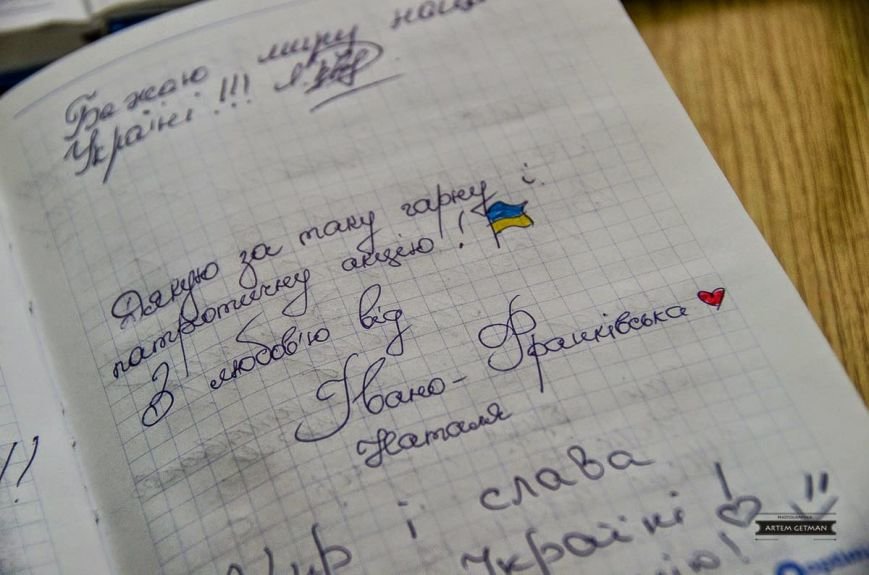 Бажаю миру нашій
Україні!!!
Дякую за таку гарну і
патріотичну акцію!
З любов'ю від
Івано-Франківська
Наталя
Мир і слава
Україні!
!!
PHOTOGRAPHER
ARTEM GETMAN